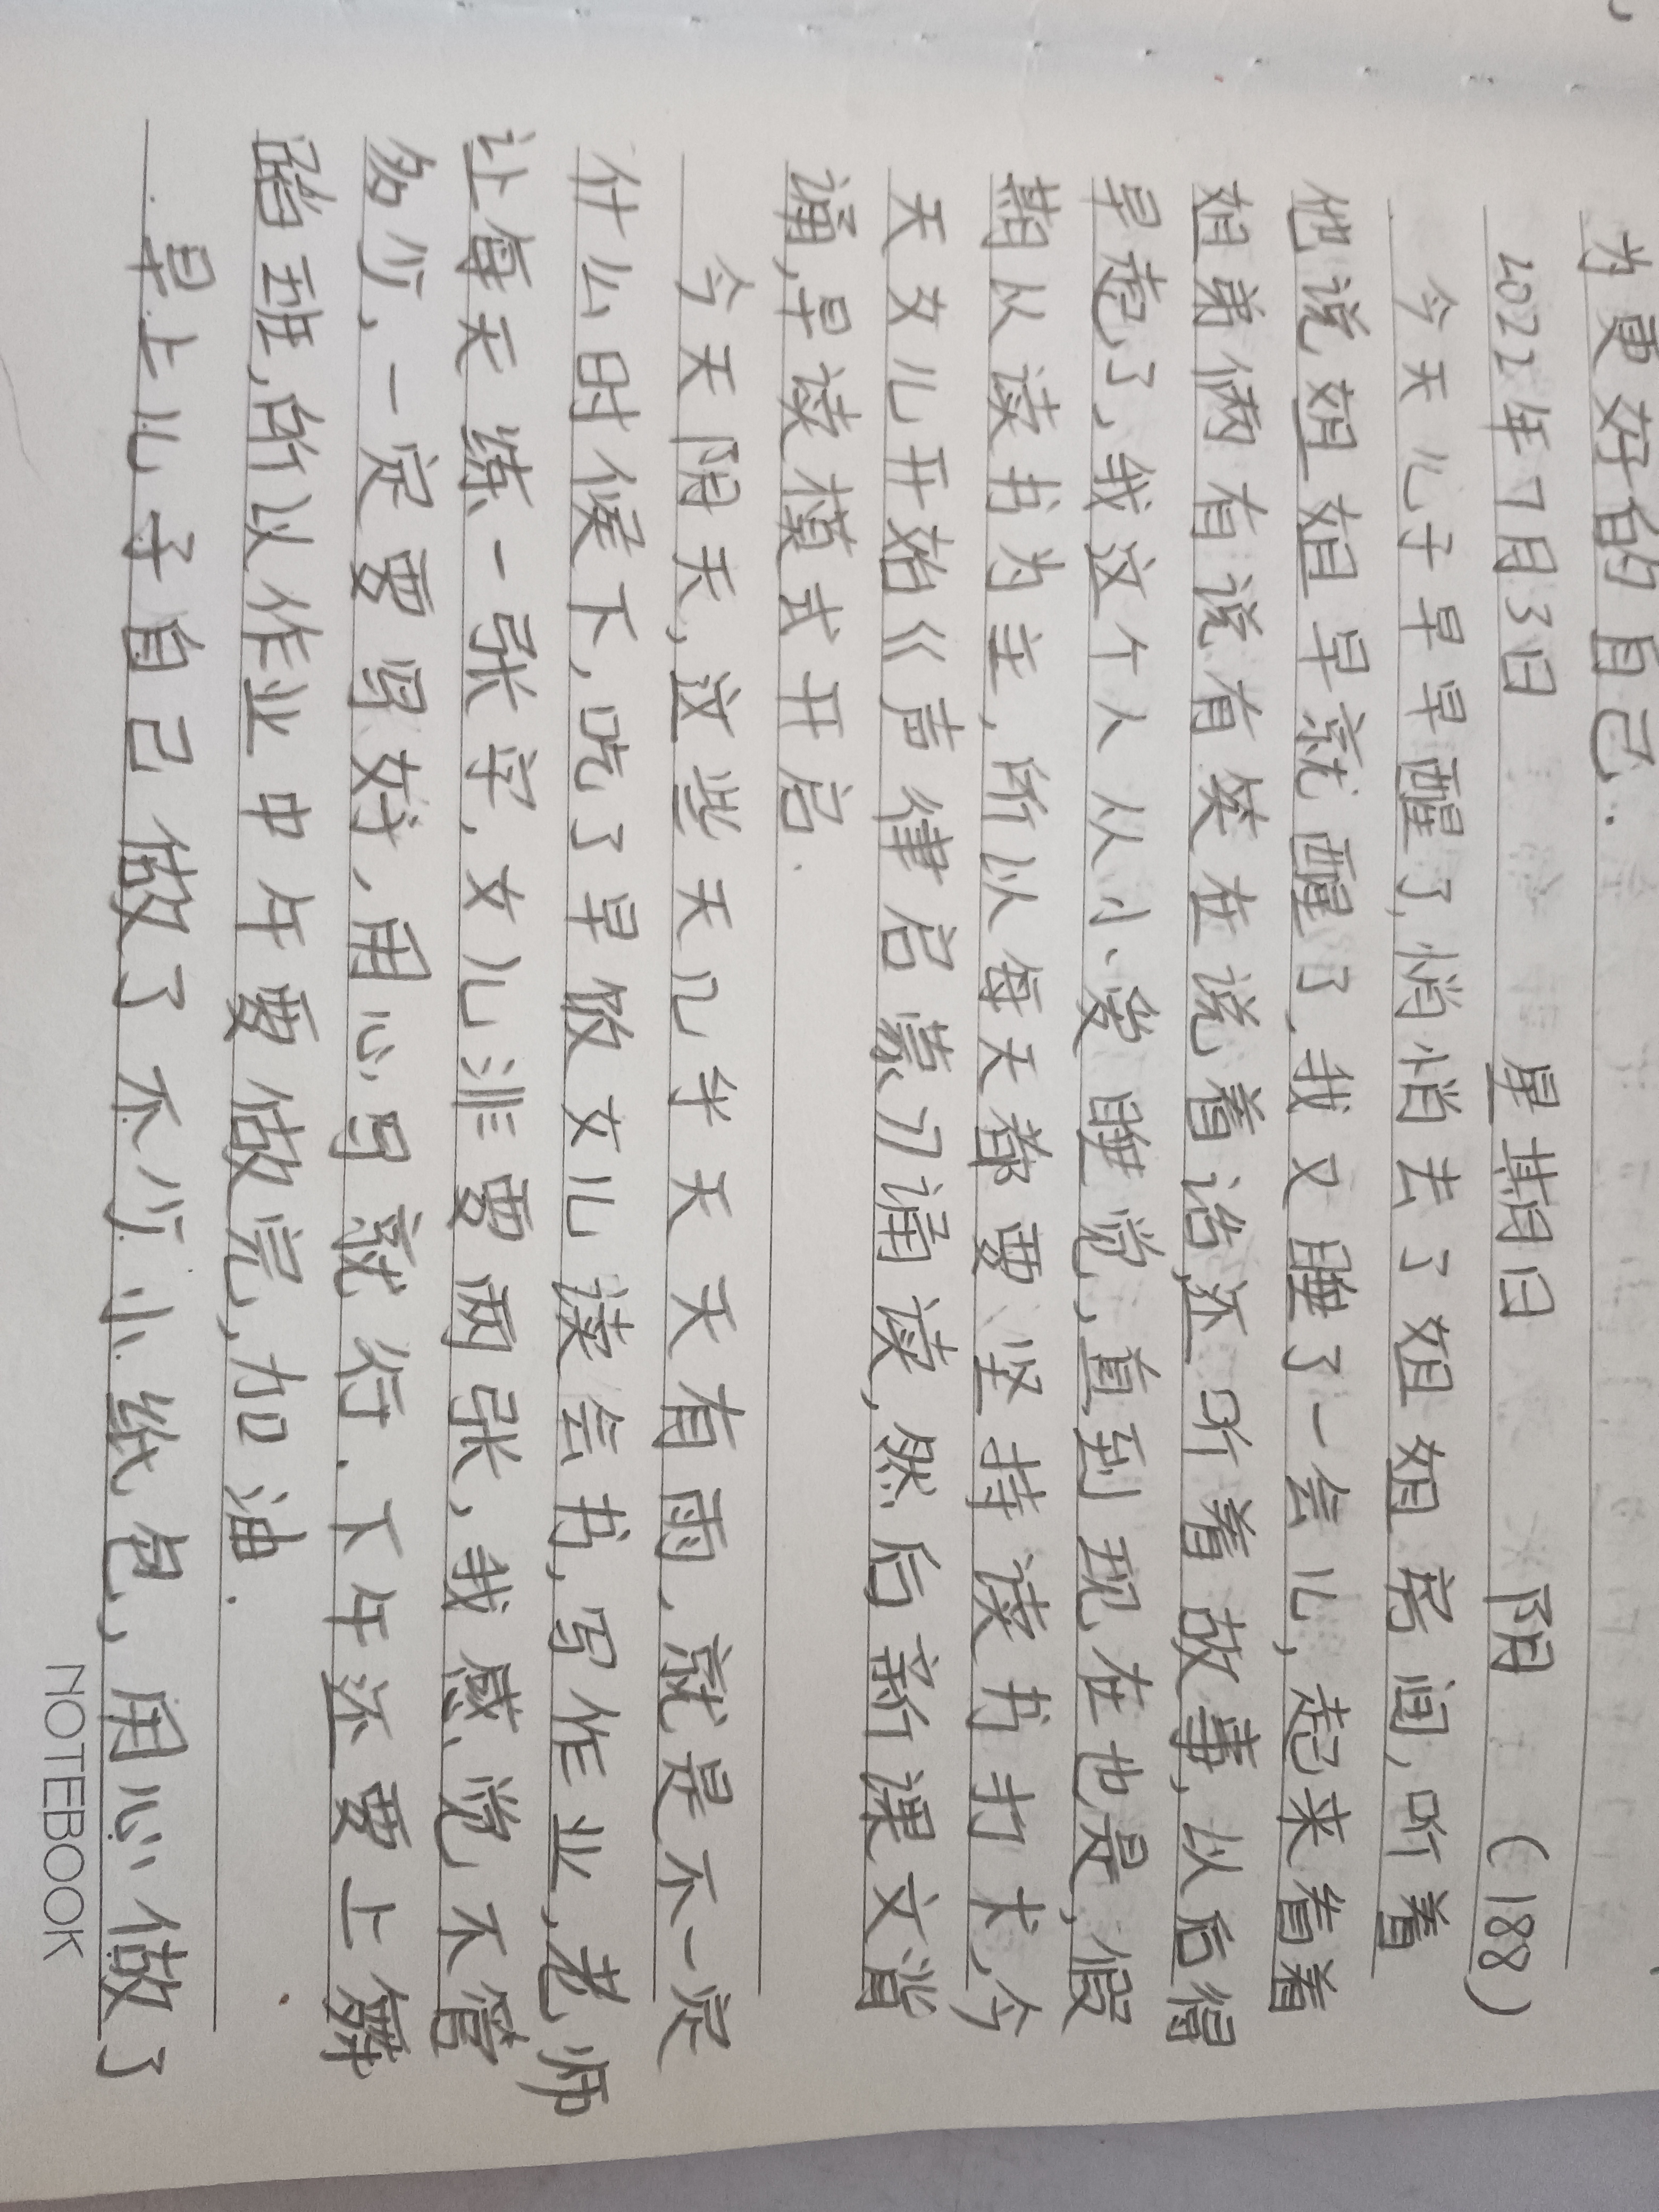 为更好的自己.
2022年7月3日 星期日 阴 (188)
今天儿子早早醒了,悄悄去了姐姐房间,听着
他说姐姐早就醒了,我又睡了一会儿,起来看着
姐弟俩有说有笑在说着话,还听着故事,以后得
早起了,我这个人从小爱睡觉,直到现在也是,假
期以读书为主,所以每天都要坚持读书打卡,今
天女儿开始《声律启蒙》诵读,然后新课文背
诵,早读模式开启.
今天阴天,这些天几乎天天有雨,就是不一定
什么时候下,吃了早饭女儿读会书,写作业,老师
让每天练一张字,女儿非要两张,我感觉不管
多少,一定要写好,用心写就行.下午还要上舞
蹈班,所以作业中午要做完,加油.
早上儿子自己做了不少小纸包,用心做了
NOTEBOOK